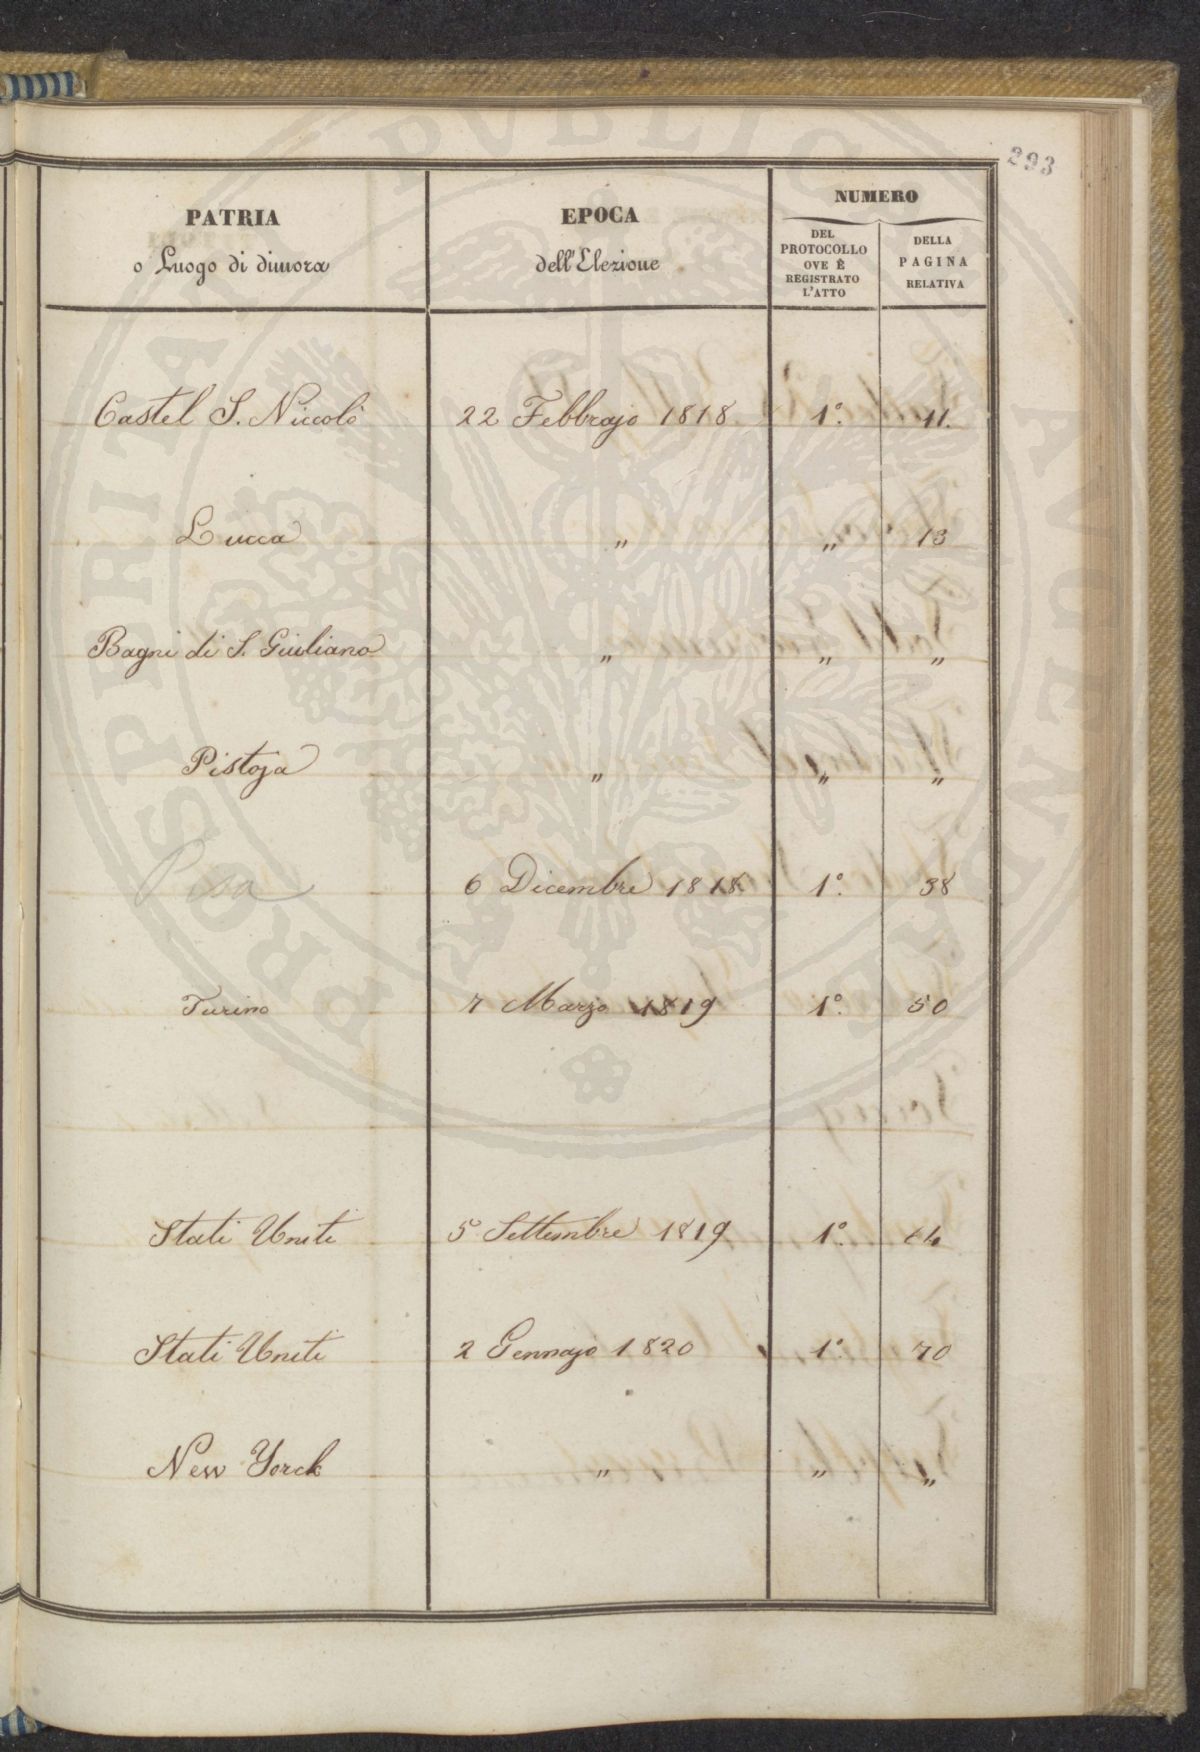 293
PATRIA
o Luogo di dimora
EPOCA
dell'Elezione
NUMERO
DEL
PROTOCOLLO
OVE È
REGISTRATO
L'ATTO
DELLA
PAGINA
RELATIVA
Castel S. Niccolò 22 Febbrajo 1818. 1°. 11.
Lucca " " 13
Bagni di S. Giuliano " " "
Pistoja " " "
Pisa 6 Dicembre 1818 1°. 38
Turino 7 Marzo 1819 1°. 50
Stati Uniti 5 Settembre 1819 1°. 64
Stati Uniti 2 Gennajo 1820 1°. 70
New Yorck " " "
PROSPERITAS PVBLICA AVGENDAE